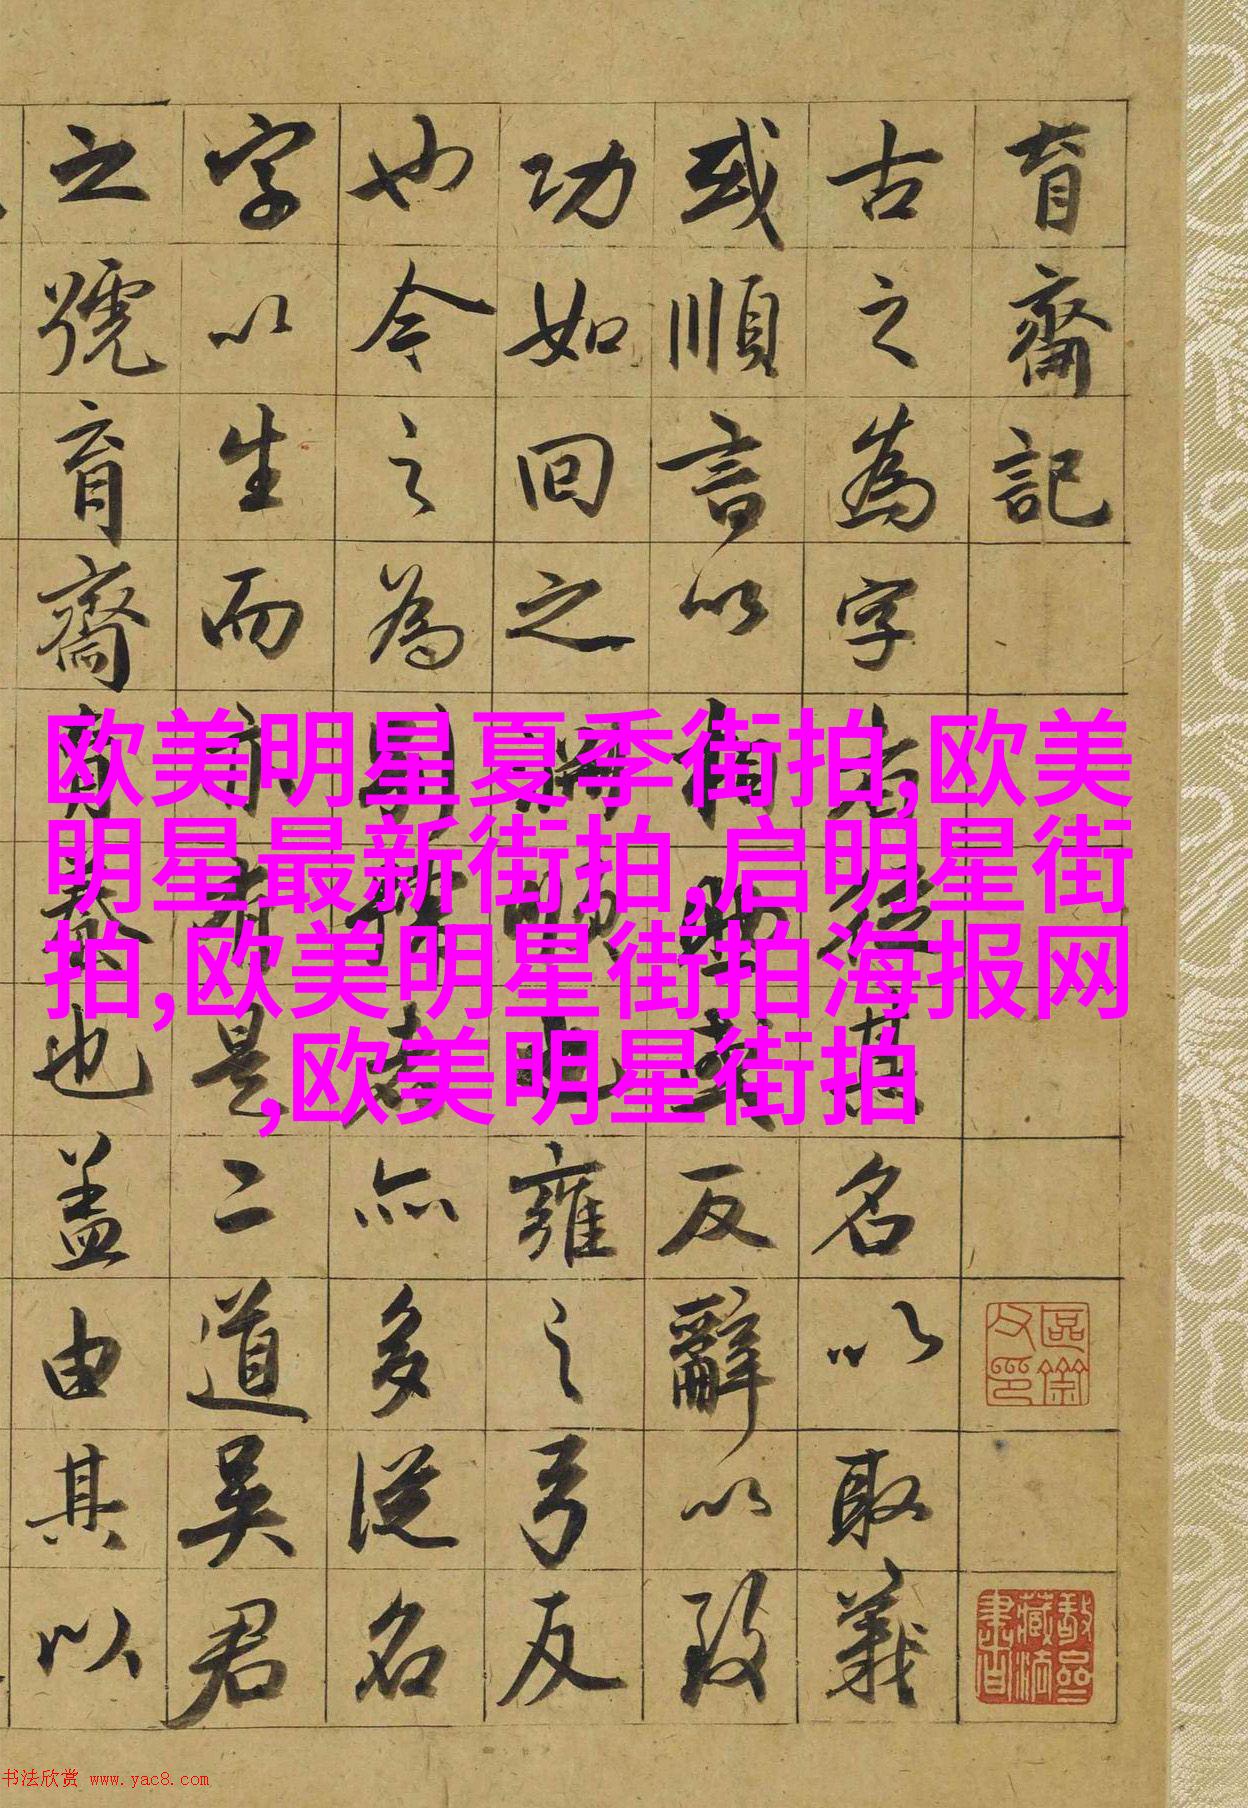 育齋記
古之為字者從其名以取義
或順言以相助或反辭以致
功如回之淵順也雍之弓反
也今之為別號者亦多從名
字以生而亦有是二道吴君
之號育齋育養也盖由其以
欧美明星夏季街拍,欧美
明星最新街拍,启明星街
拍,欧美明星街拍海报网
,欧美明星街拍
书法欣赏 www.yac8.com